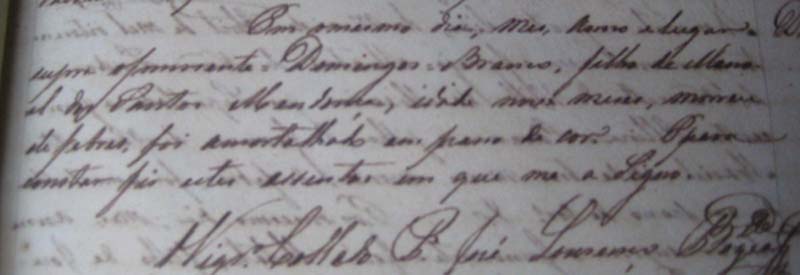 Em o mesmo dia, mes, anno e lugar
supra o innocente Domingos Branco, filho de Mano
el dos Santos, idade nove mezes, morreu
de febres, foi amortalhado em pano de cor. E para
constar fiz este assentar em que me a Signo.
Vigr.º Collado P.e José Lourenço